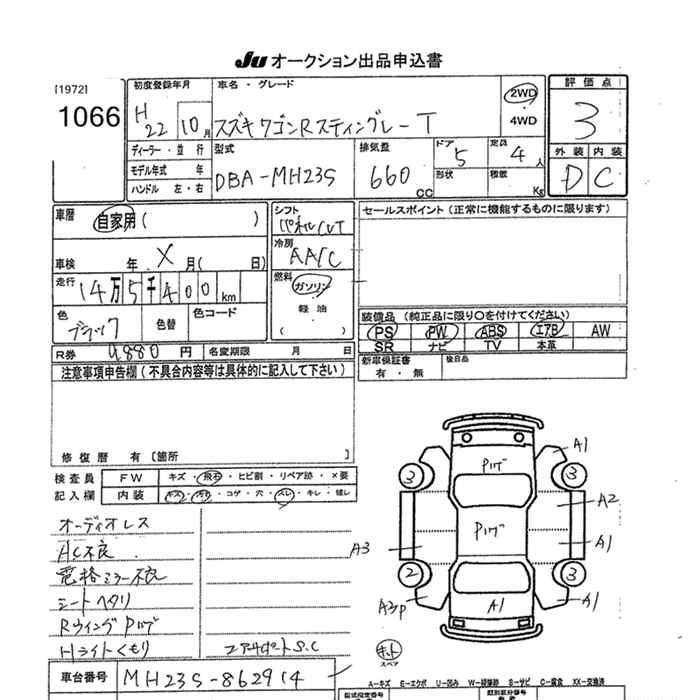 Ju オークション出品申込書
[1972]
1066
初度登録年月
車名・グレード
H22 10月
スズキ ワゴンRスティングレー T
2WD
4WD
評価点
3
ディーラー・並行
モデル年式 年
ハンドル 左・右
型式
DBA-MH23S
排気量
660 CC
ドア
5
形状
定員
4 人
積載
Kg
外装 内装
D C
車歴
自家用( )
車検 年 X 月( 日)
走行
14万5千400km
色
ブラック
色替
色コード
シフト
パネルCVT
冷房
AA/C
燃料
ガソリン
軽油
( )
セールスポイント(正常に機能するものに限ります)
装備品(純正品に限り○を付けてください)
PS PW ABS エアB AW
SR ナビ TV 本革
新車保証書
有・無
後日品
R券 9,880 円 名変期限 月 日
注意事項申告欄(不具合内容等は具体的に記入して下さい)
修復歴 有〔箇所 〕
検査員記入欄
FW キズ・飛石・ヒビ割・リペア跡・×要
内装 キズ・汚れ・コゲ・穴・スレ・キレ・破レ
オーディオレス
AC不良
電格ミラー不良
シートヘタリ
RウィングPハゲ
Hライトくもり
エアサポートS.C
車台番号 MH23S-862914
Pハゲ
A1
3
3
A2
Pハゲ
A3
A1
2
3
A3P
A1
A1
キット
スペア
A…キズ E…エクボ U…凹み W…経跡跡 S…サビ C…腐食 XX…交換済